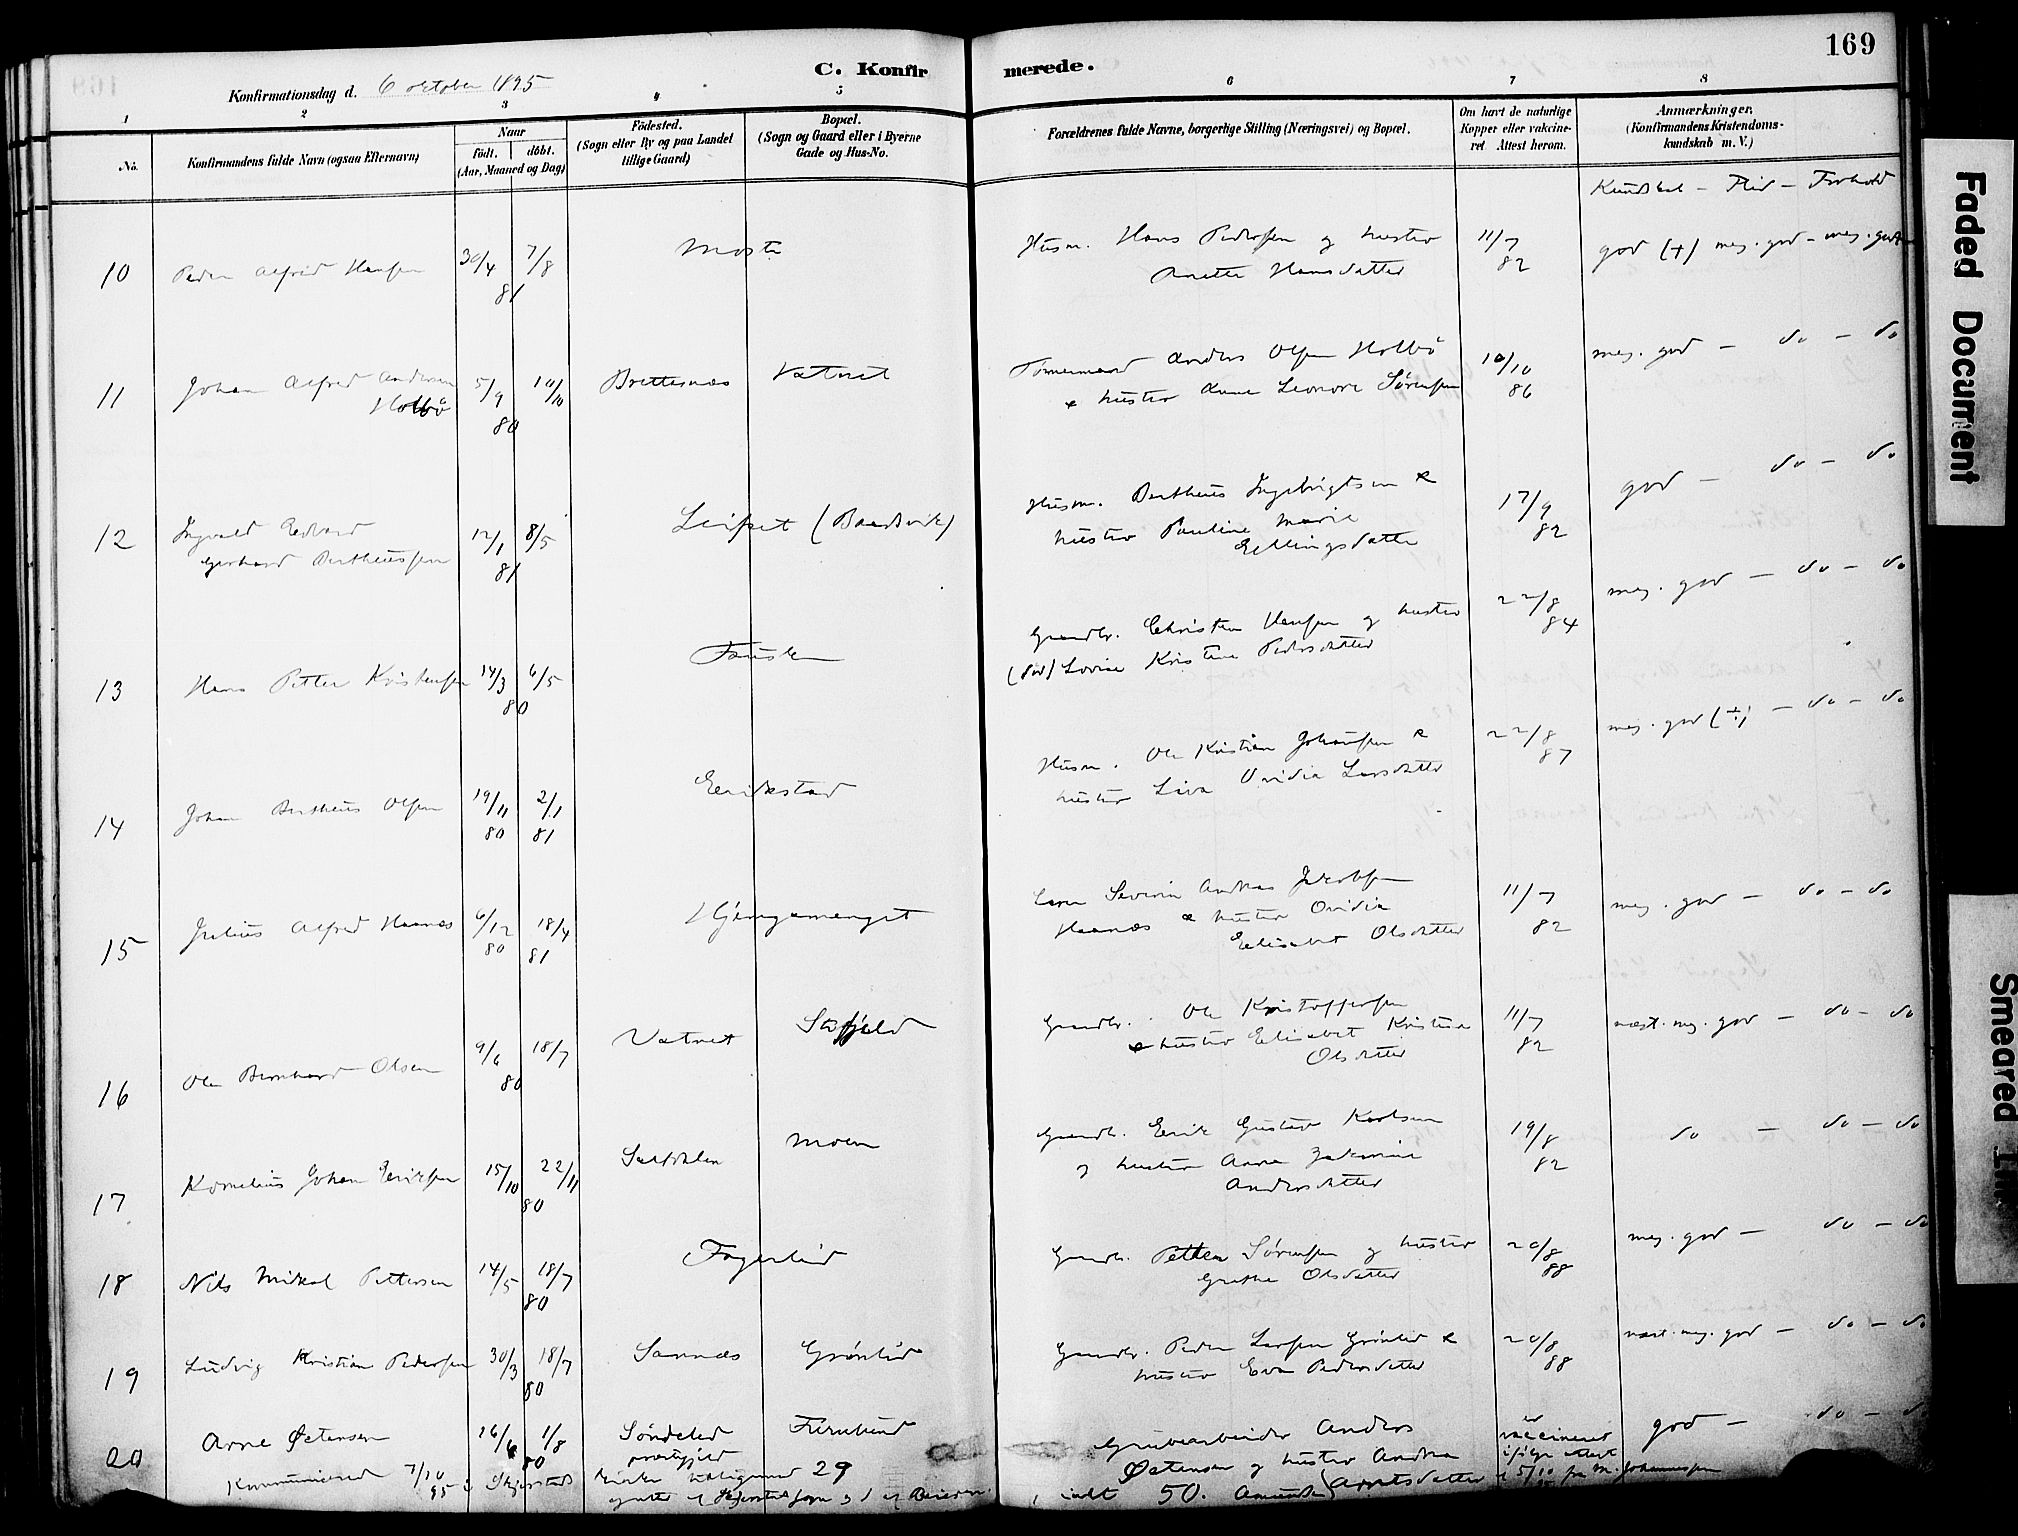 169
C. Konfirmerede.
Konfirmationsdag d. 6 october 1895
1 2 3 4 5 6 7 8
No.
Konfirmandens fulde Navn (ogsaa Efternavn)
Naar
födt. döbt.
(Aar, Maaned og Dag)
Födested.
(Sogn eller By og paa Landet
tillige Gaard)
Bopæl.
(Sogn og Gaard eller i Byerne
Gade og Hus-No.
Forældrenes fulde Navne, borgerlige Stilling (Næringsvei) og Bopæl.
Om havt de naturlige
Kopper eller vakcine-
ret Attest herom.
Anmærkninger.
(Konfirmandens Kristendoms-
kundskab m. V.)
Kundskab – Flid – Forhold
10 Peder Alfred Hansen 30/4 81 7/8
Husm. Hans Pedersen og hustru
Anette Hansdatter
11/7 82
god (+) meg. god – meg. god
11 Johan Alfred Andersen
Holbö
5/9 80 10/10 Brettesnæs Vatnet
Tømmermand Anders Olsen Holbö
& hustru Anne Leonore Sørensen
10/10 86
meg. god – do – do
12 Ingvald Edvard
Gerhard Bertheussen
12/1 81 8/5 Leifset (Baadsvik)
Husm. Bertheus Ingebrigtsen &
hustru Pauline Marie
Ellingsdatter
17/9 82
god – do – do
13 Hans Petter Kristensen 14/3 80 6/5 Fauske
Gaardbr. Christen Hansen og hustru
(död) Lovise Kristine Pedersdatter
22/8 84
meg. god – do – do
14 Johan Bertheus Olsen 19/11 80 2/1 81 Erikstad
Husm. Ole Kristian Johansen &
hustru Ovidia Larsdatter
22/8 87
meg. god (÷) – do – do
15 Julius Alfred Haanæs 6/12 80 18/4 81 Hjemgamenget
Severin Andreas Jakobsen
Haanæs & hustru Ovidia
Elisabet Olsdatter
11/7 82
meg. god – do – do
16 Ole Bernhard Olsen 9/6 80 18/7 Vatnet
Gaardbr. Ole Kristoffersen
& hustru Elisabet Kristine
Olsdatter
11/7 82
næst. meg. god – do – do
17 Kornelius Johan Eriksen 15/10 80 22/11 Moen
Gaardb. Erik Gustav Karlsen
og hustru Anna Jakobine
Andersdatter
19/8 82
do – do – do
18 Nils Mikal Pettersen 14/5 80 18/7 Fagerlid
Gaardb. Petter Sørensen og hustru
Grethe Olsdatter
20/8 88
meg. god – do – do
19 Ludvig Kristian Pedersen 30/3 80 18/7 Sannæs Grönlid
Gaardbr. Peder Larsen Grönlid &
hustru Eva Pedersdatter
20/8 88
næst. meg. god – do – do
20 Arne Østensen 16/6 80 1/8 Söndeled
præstgjeld
Furulund
Grubearbeider Anders
Østensen og hustru Andrea
Arntsdatter
er
vaccineret
ifølge attest
5/10 fra M. Johannessen
god – do
Kommunicered 7/10 95 i Skjerstad kirke 29
50.